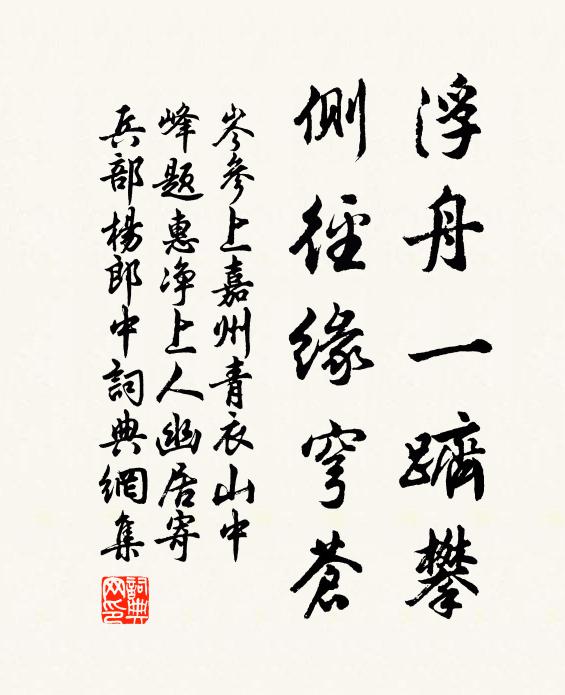 浮舟一躋攀
側徑緣穹蒼
岑參上嘉州青衣山中
峰題惠净上人幽居寄
兵部楊郎中詞典網集
詞典网印